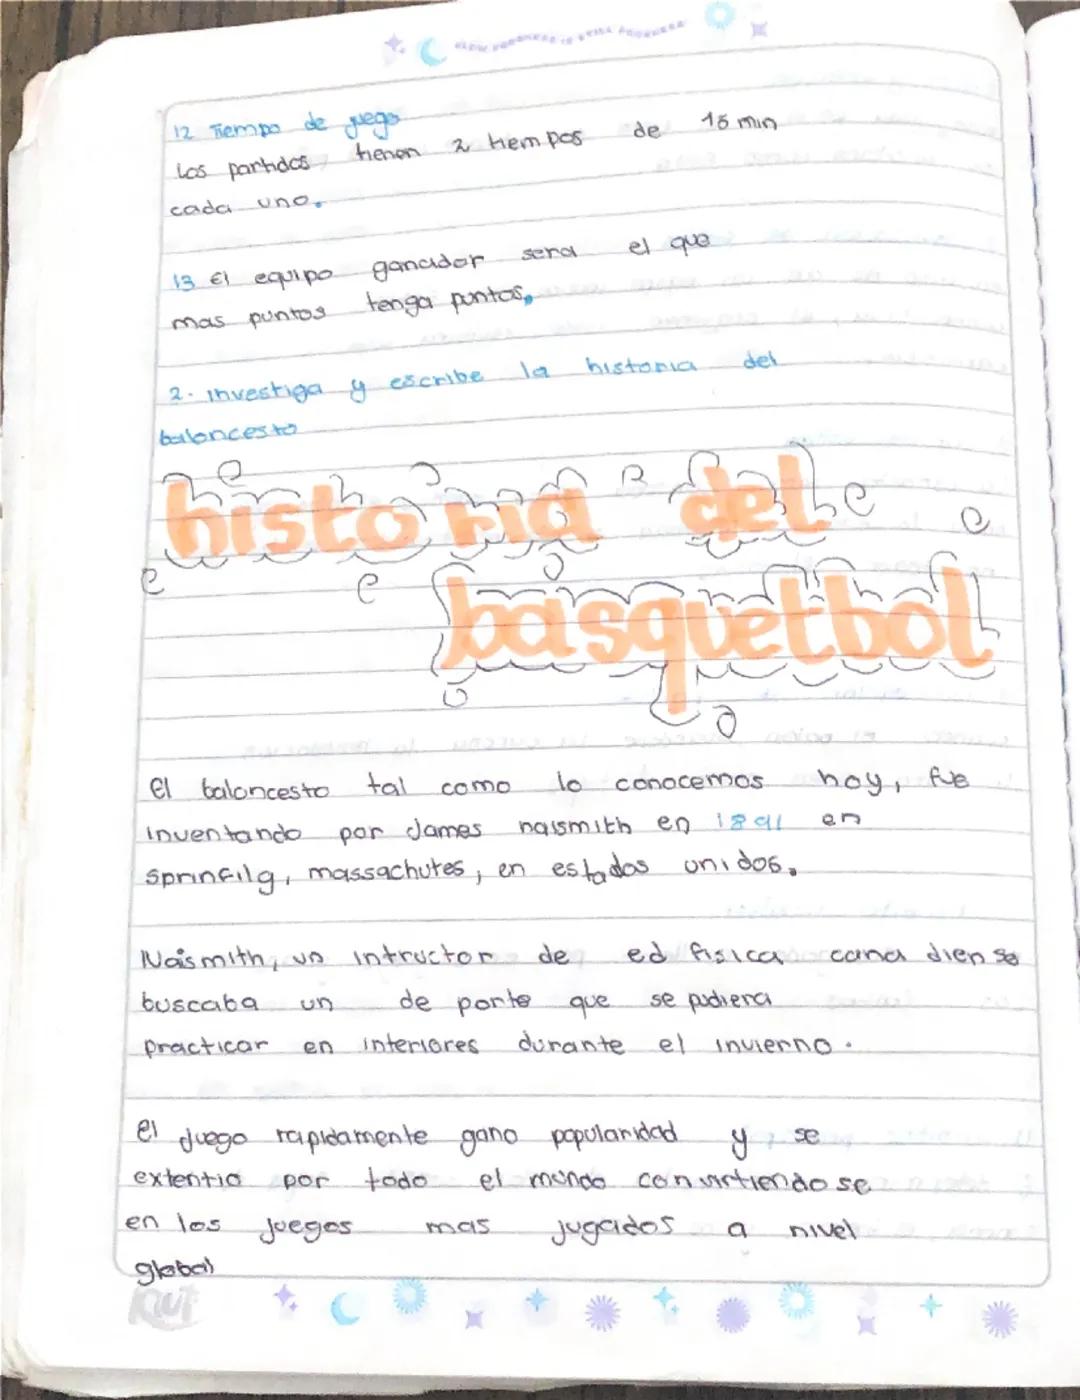 SLOW PROGRESS IS STILL PROGRESS
12 Tiempo de juego
Los partidos, tienen 2 tiempos de 15 min
cada uno.
13 El equipo ganador sera el que
mas puntos tenga puntos.
2. investiga y escribe la historia del
baloncesto
historia del
basquetbol
El baloncesto tal como lo conocemos hoy, fue
inventando por James naismith en 1891 en
sprinfilg, massachutes, en estados unidos.
Naismith, un intructor de ed fisica cana diense
buscaba un de porte que se pudiera
practicar en interiores durante el invierno.
el juego rapidamente gano popularidad y se
extentio por todo el mundo convirtiendose
en los juegos mas jugados a nivel
global